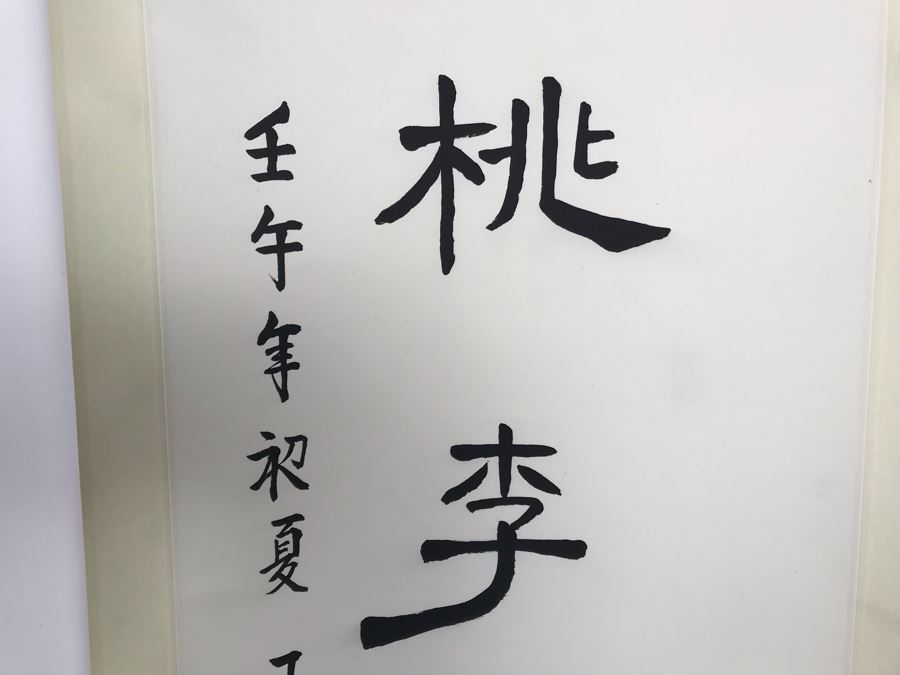 桃李
壬午年初夏